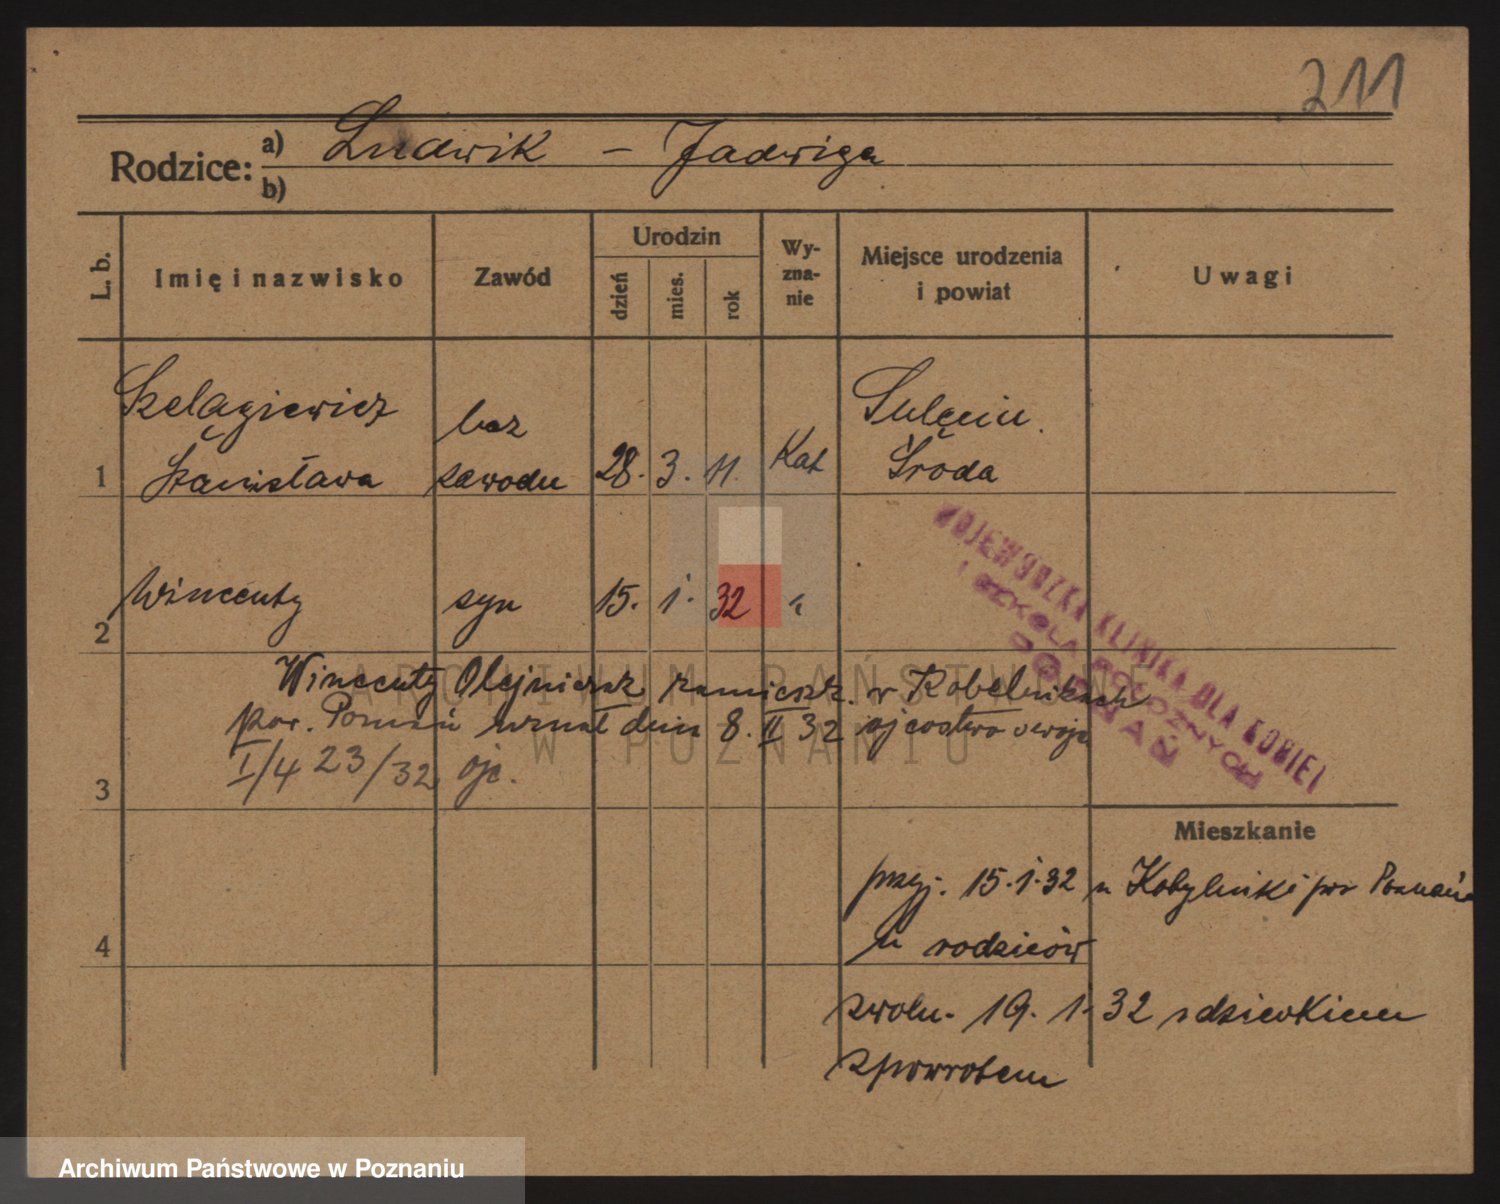 211
Rodzice: a) Ludwik - Jadwiga
b)
L. b.
Imię i nazwisko
Zawód
Urodzin
dzień
mies.
rok
Wy-
zna-
nie
Miejsce urodzenia
i powiat
Uwagi
Szelągiewicz bez Sulęcin.
1 Stanisława zawodu 28. 3. 11. Kat Środa
2 Wincenty syn 15. 1. 32 "
WOJEWÓDZKA KLINIKA DLA KOBIET
I SZKOŁA POŁOŻNYCH
POZNAŃ
Wincenty Olejniczak zamieszk. w Kobelnikach
pow. Poznań uznał dnia 8. II 32 ojcostwo swoje
3 I/4 23/32 ojc.
Mieszkanie
przyj. 15. 1. 32 z Kobylniki pow Poznań
4 u rodziców
zwoln. 19. 1. 32 z dzieckiem
zpowrotem
ARCHIWUM PAŃSTWOWE
W POZNANIU
Archiwum Państwowe w Poznaniu